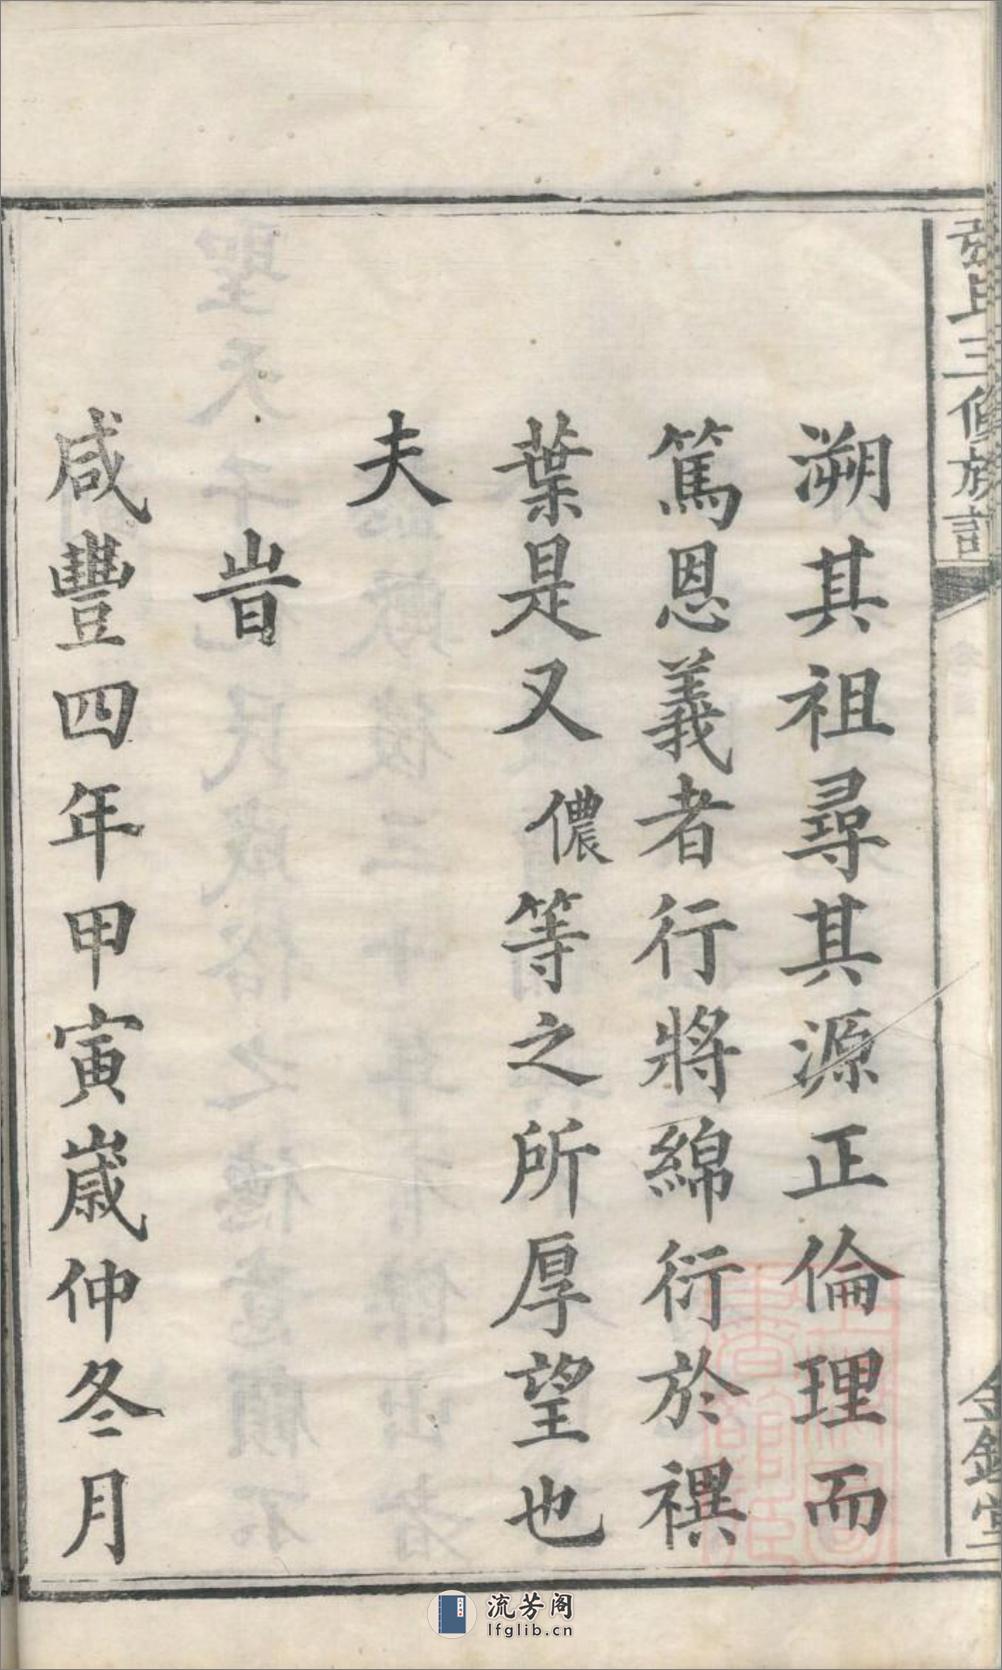 張氏三修族譜
金鑑堂
溯其祖尋其源正倫理而
篤恩義者行將綿衍於禩
葉是又儂等之所厚望也
夫
旹
咸豐四年甲寅歲仲冬月
流芳阁
lfglib.cn